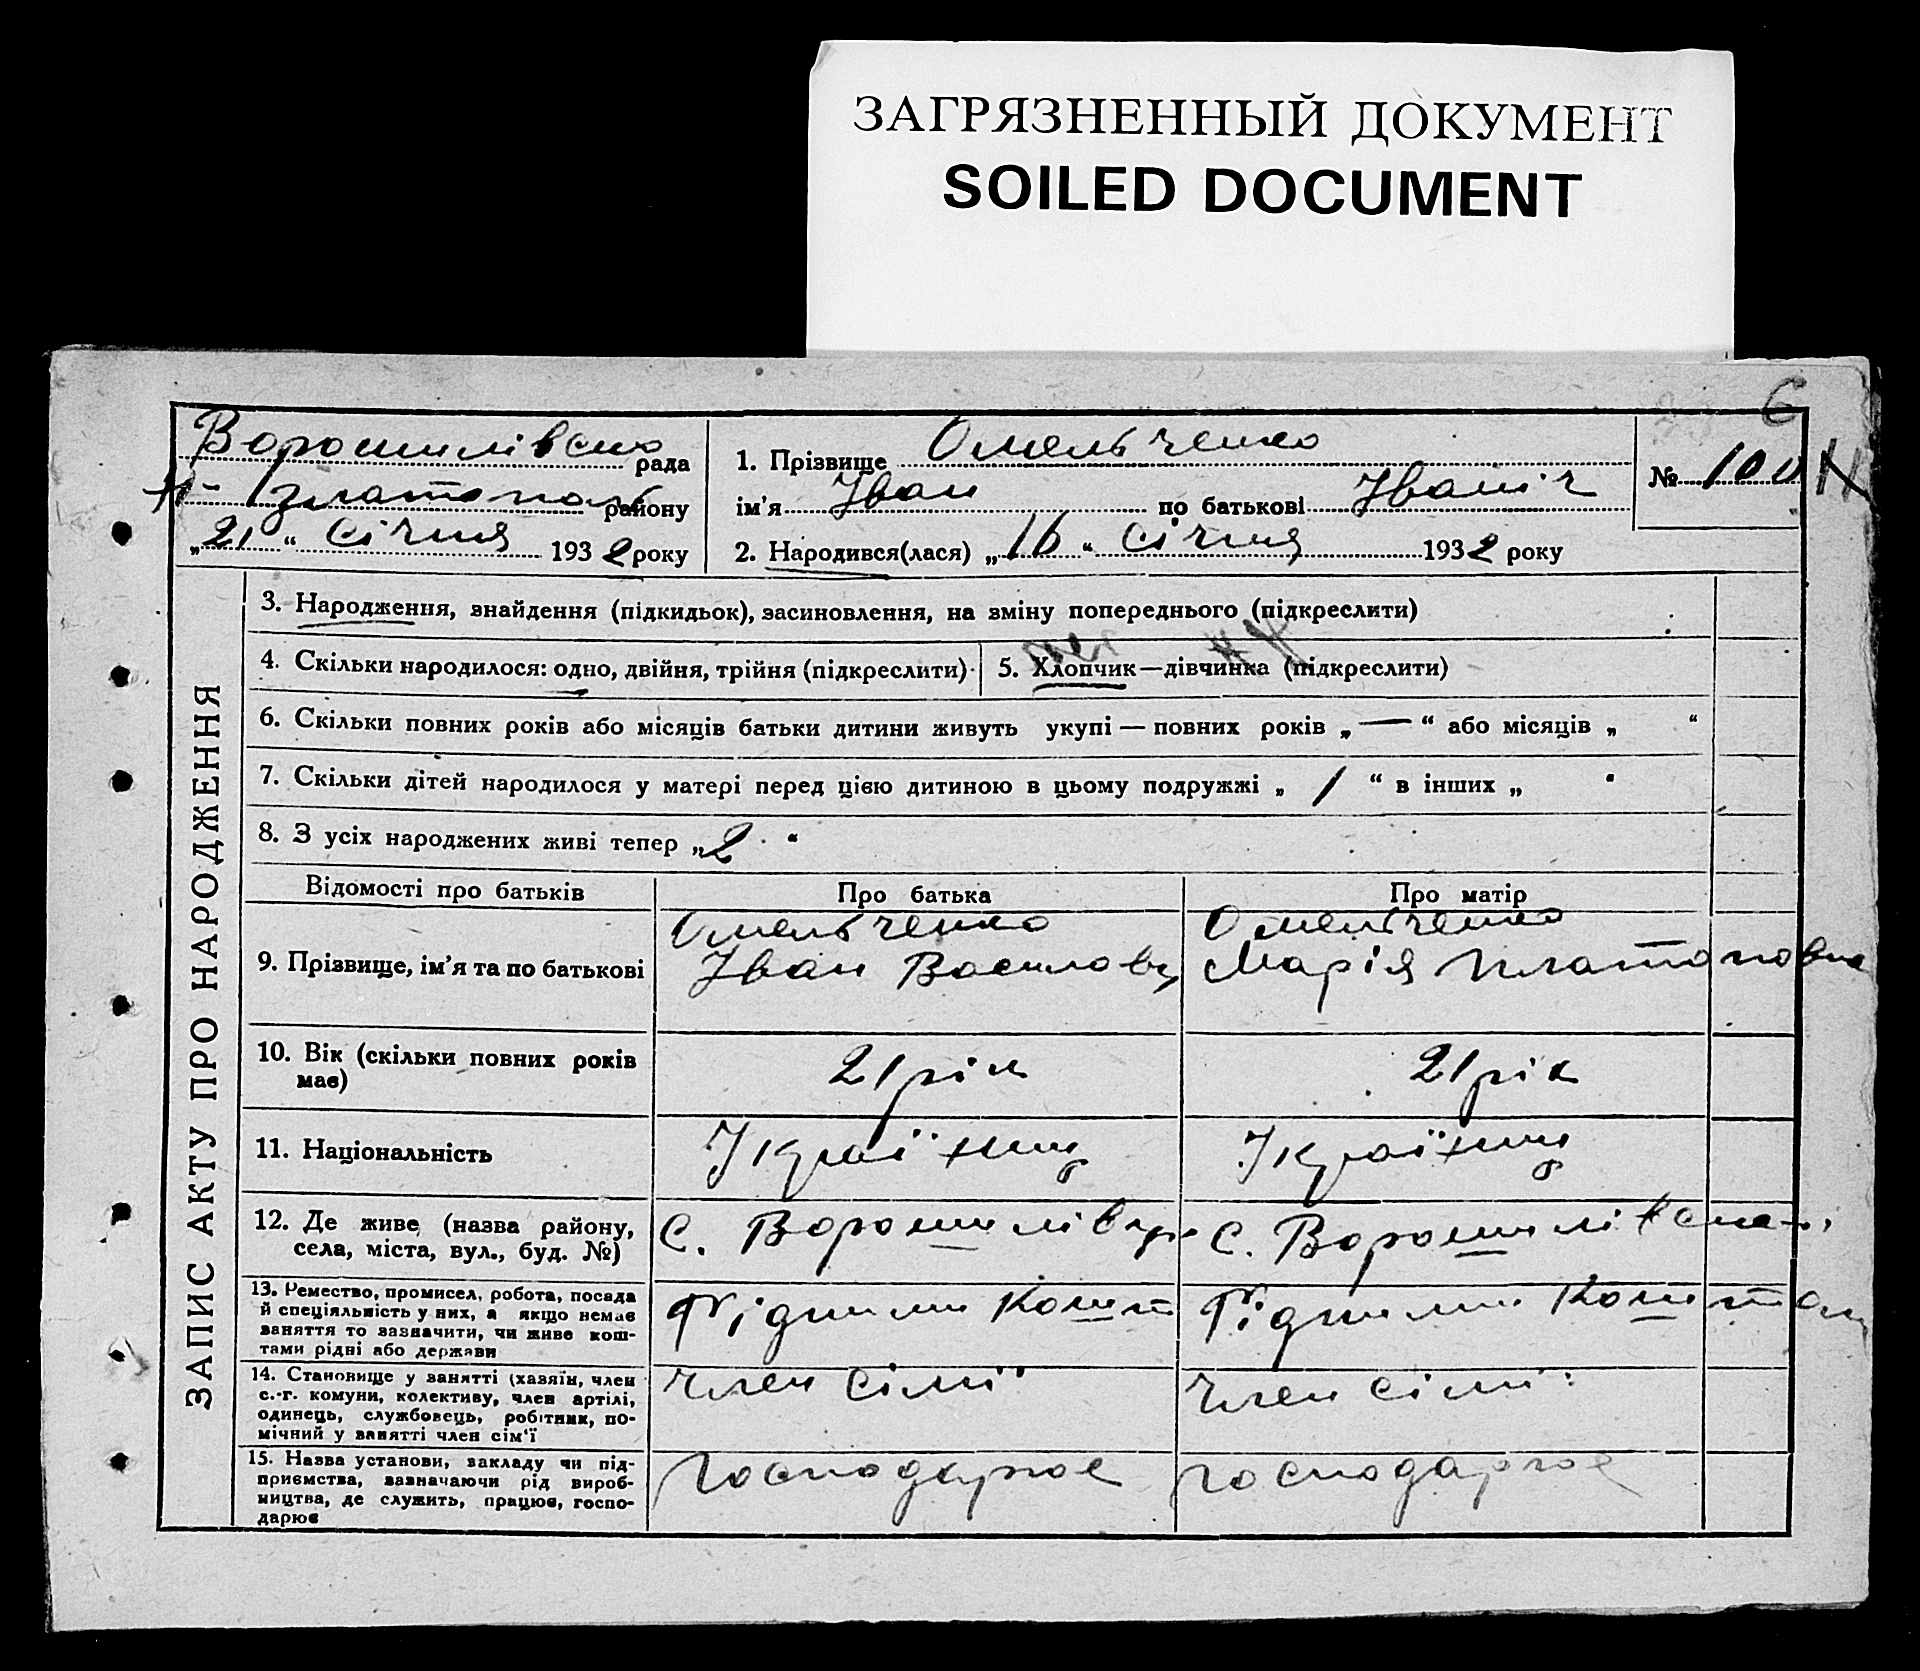 ЗАГРЯЗНЕННЫЙ ДОКУМЕНТ
SOILED DOCUMENT
6
Ворошилівська рада
златопіль району
„21“ січня 1932 року
1. Прізвище Омельченко
ім'я Іван по батькові Іваніч
2. Народився(лася) „16“ січня 1932 року
№
ЗАПИС АКТУ ПРО НАРОДЖЕННЯ
3. Народження, знайдення (підкидьок), засиновлення, на зміну попереднього (підкреслити)
4. Скільки народилося: одно, двійня, трійня (підкреслити)
5. Хлопчик—дівчинка (підкреслити)
6. Скільки повних років або місяців батьки дитини живуть укупі — повних років „—“ або місяців „ “
7. Скільки дітей народилося у матері перед цією дитиною в цьому подружжі „ 1 “ в інших „ “
8. З усіх народжених живі тепер „2 “
Відомості про батьків Про батька Про матір
9. Прізвище, ім'я та по батькові
Омельченко
Іван Василовц
Омельченко
Марія Платоновна
10. Вік (скільки повних років
має)
21 рік
21 рік
11. Національність
Україниц
Україниц
12. Де живе (назва району,
села, міста, вул., буд. №)
с. Ворошилівц
с. Ворошилівська
13. Ремество, промисел, робота, посада
й спеціяльність у них, а якщо немає
заняття то зазначити, чи живе кош-
тами рідні або держави
Рідними кошт
Рідними коштам
14. Становище у занятті (хазяїн, член
с.-г. комуни, колективу, член артілі,
одинець, службовець, робітник, по-
мічний у занятті член сім'ї
член сімії
член сімії
15. Назва установи, закладу чи під-
приємства, зазначаючи рід вироб-
ництва, де служить, працює, госпо-
дарює
господарює
господарює